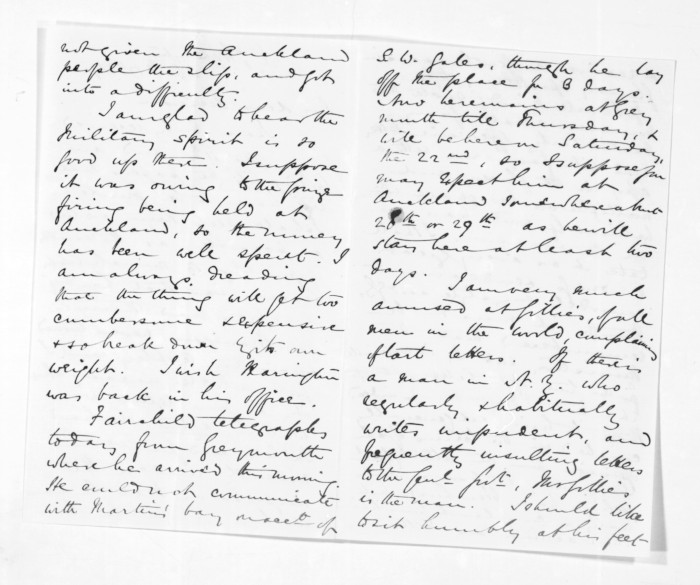 not given the Auckland
people the slip, and got
into a difficulty.
I am glad to hear the
Military spirit is so
good up there. I suppose
it was owing to the prize
firing being held at
Auckland, so the money
has been well spent. I
am always dreading
that the thing will get too
cumbersome & expensive
& so break down by its own
weight. I wish Harington
was back in his office.
Fairchild telegraphs
today from Greymouth
where he arrived this morning.
He could not communicate
with Martin's bay on acct of
S.W. gales, though he lay
off the place for 3 days.
he remains at Grey
mouth till Thursday, &
will be here on Saturday,
the 22nd, so I suppose you
may expect him at
Auckland somewhere about
28th or 29th as he will
stay here at least two
days.
I am very much
amused at Gillies, of all
men in the world, complaining
of tart letters. If there is
a man in N.Z. who
regularly & habitually
writes impudent, and
frequently insulting letters
to the Genl Govt, Mr Gillies
is the man. I should like
to sit humbly at his feet